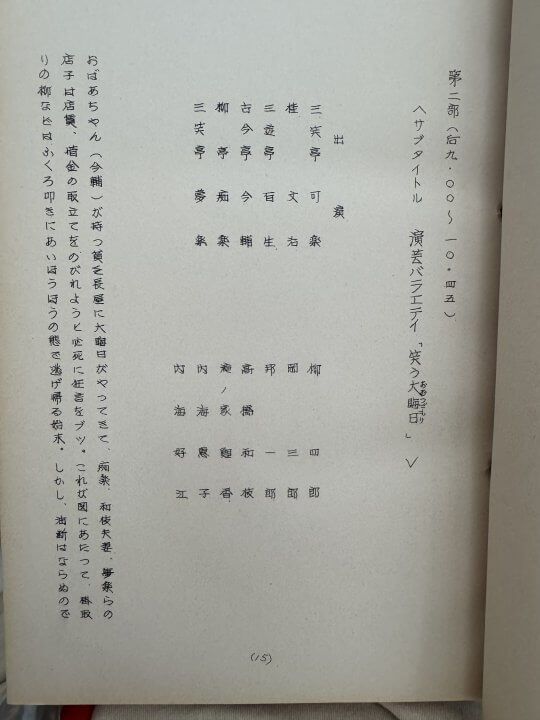 第二部(后九・〇〇〜一〇・四五)
〈サブタイトル 演芸バラエテイ「笑う大晦日」〉
おおつごもり
出演
三笑亭可楽 柳四郎
桂文治 岡三郎
三遊亭百生 邦一郎
古今亭今輔 高橋和枝
柳亭痴楽 滝ノ家鯉香
三笑亭夢楽 内海恵子
内海好江
おばあちゃん(今輔)が持つ貧乏長屋に大晦日がやってきて、痴楽、和枝夫妻、夢楽らの
店子は店賃、借金の取立てをのがれようと必死に狂言をブツ。これが図にあたつて、掛取
りの柳などはふくろ叩きにあいほうほうの態で逃げ帰る始末。しかし、油断はならぬので
(15)